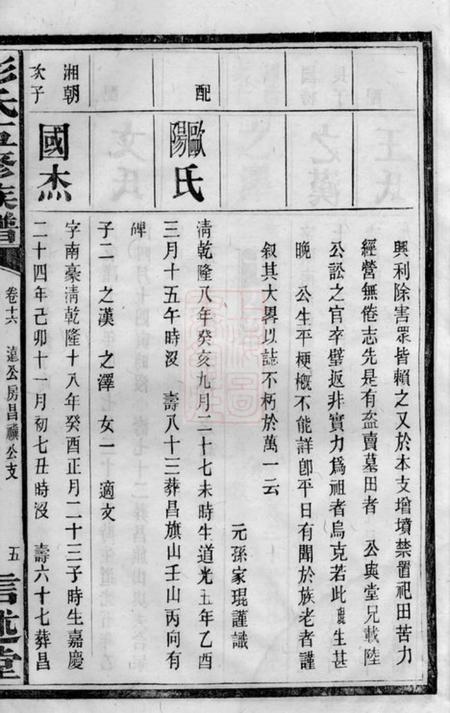 興利除害眾皆賴之又於本支增墳禁置祀田苦力
經營無倦志先是有盜賣墓田者 公與堂兄載陸
公訟之官卒璧返非實力為祖者烏克若此 生甚
晚 公生平梗概不能詳即平日有聞於族老者謹
叙其大畧以誌不朽於萬一云
元孫家琨謹識
配
歐陽氏
清乾隆八年癸亥九月二十七未時生道光五年乙酉
三月十五午時沒 壽八十三葬昌旗山壬山丙向有
碑
子二 之漢 之澤 女一 適文
湘朝
次子
國杰
字南豪清乾隆十八年癸酉正月二十三子時生嘉慶
二十四年己卯十一月初七丑時沒 壽六十七葬昌
彭氏五修族譜
卷十六
遠公房昌礦公支
五
信述堂